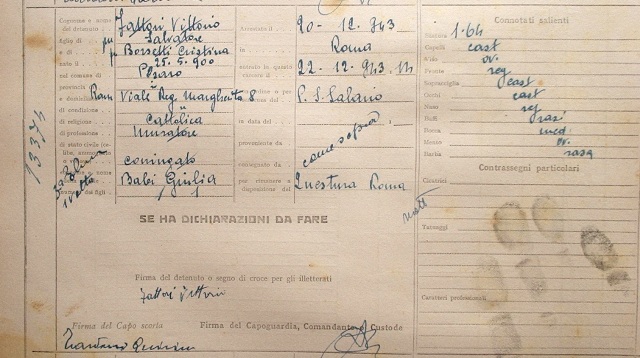 Cognome e nome
del detenuto
Fattori Vittorio
figlio di
fu Salvatore
e di
fu Borsetti Cristina
nato il
25.5.900
nel comune di
Pesaro
provincia
Roma Viale Reg. Margherita 8
di condizione
di religione
Cattolica
di professione
Muratore
di stato civile
coniugato
Babi Giulia
dei figli
13374
SE HA DICHIARAZIONI DA FARE
Firma del detenuto o segno di croce per gli illetterati
Fattori Vittorio
Firma del Capo scorta
Firma del Capoguardia, Comandante o Custode
Arrestato il
20-12-943
Roma
22-12-943
P. S. Salario
in data del
proveniente da
come sopra
consegnato da
per rimanere a
disposizione del
Questura Roma
Connotati salienti
Statura 1.64
Capelli cast
Viso ov.
Fronte reg
Sopracciglia cast
Occhi cast
Naso reg
Baffi rasi
Bocca med
Mento ov.
Barba rasa
Contrassegni particolari
Cicatrici
Tatuaggi
Caratteri professionali